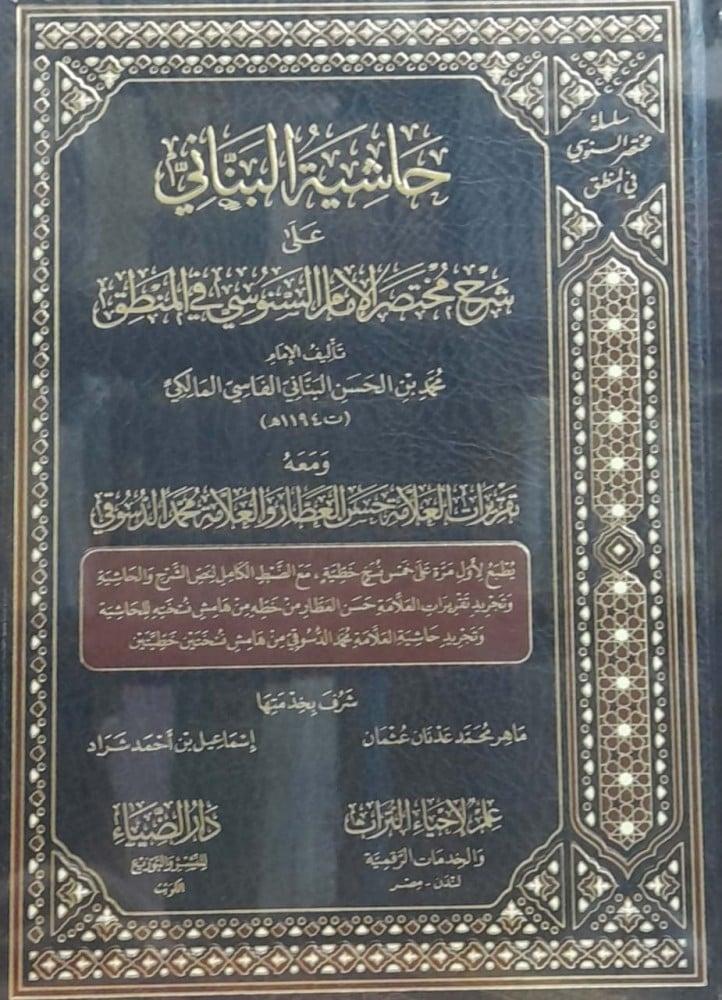 سلسلة
مختصر السنوسي
في المنطق
حَاشِيَةُ البَنَّانِيِّ
عَلَىٰ
شَرْحِ مُخْتَصَرِ الإِمَامِ السَّنُوسِيِّ فِي المَنْطِقِ
تَأليفُ الإِمَامِ
مُحَمَّد بْنِ الحَسَنِ البَنَّانِيِّ الفَاسِيِّ المَالِكِيِّ
(ت ١١٩٤هـ)
وَمَعَهُ
تَقْرِيرَات العَلَّامَة حَسَن العَطَّار وَالعَلَّامَة مُحَمَّد الدُّسُوقِي
يُطْبَعُ لِأَوَّلِ مَرَّة عَلَى خَمْسِ نُسَخٍ خَطِّيَّةٍ، مَعَ الضَّبْطِ الكَامِلِ لِنَصِّ الشَّرْحِ وَالحَاشِيَةِ
وَتَجْرِيدِ تَقْرِيرَاتِ العَلَّامَةِ حَسَن العَطَّار مِنْ خَطِّهِ مِنْ هَامِشِ نُسْخَتِهِ لِلحَاشِيَةِ
وَتَجْرِيدِ حَاشِيَةِ العَلَّامَةِ مُحَمَّد الدُّسُوقِيِّ مِنْ هَامِشِ نُسْخَتَيْنِ خَطِّيَّتَيْنِ
شَرُفَ بِخِدْمَتِهَا
مَاهِر مُحَمَّد عَدْنَان عُثْمَان
إِسْمَاعِيل بن أَحْمَد شَرَاد
عِلم لإحْيَاءِ التُّرَاث
وَالخِدمَاتِ الرَّقَمِيَّةِ
لندن - مِصْر
دَارُ الضِّيَاءِ
للنَّشْرِ وَالتَّوزِيعِ
الكويت